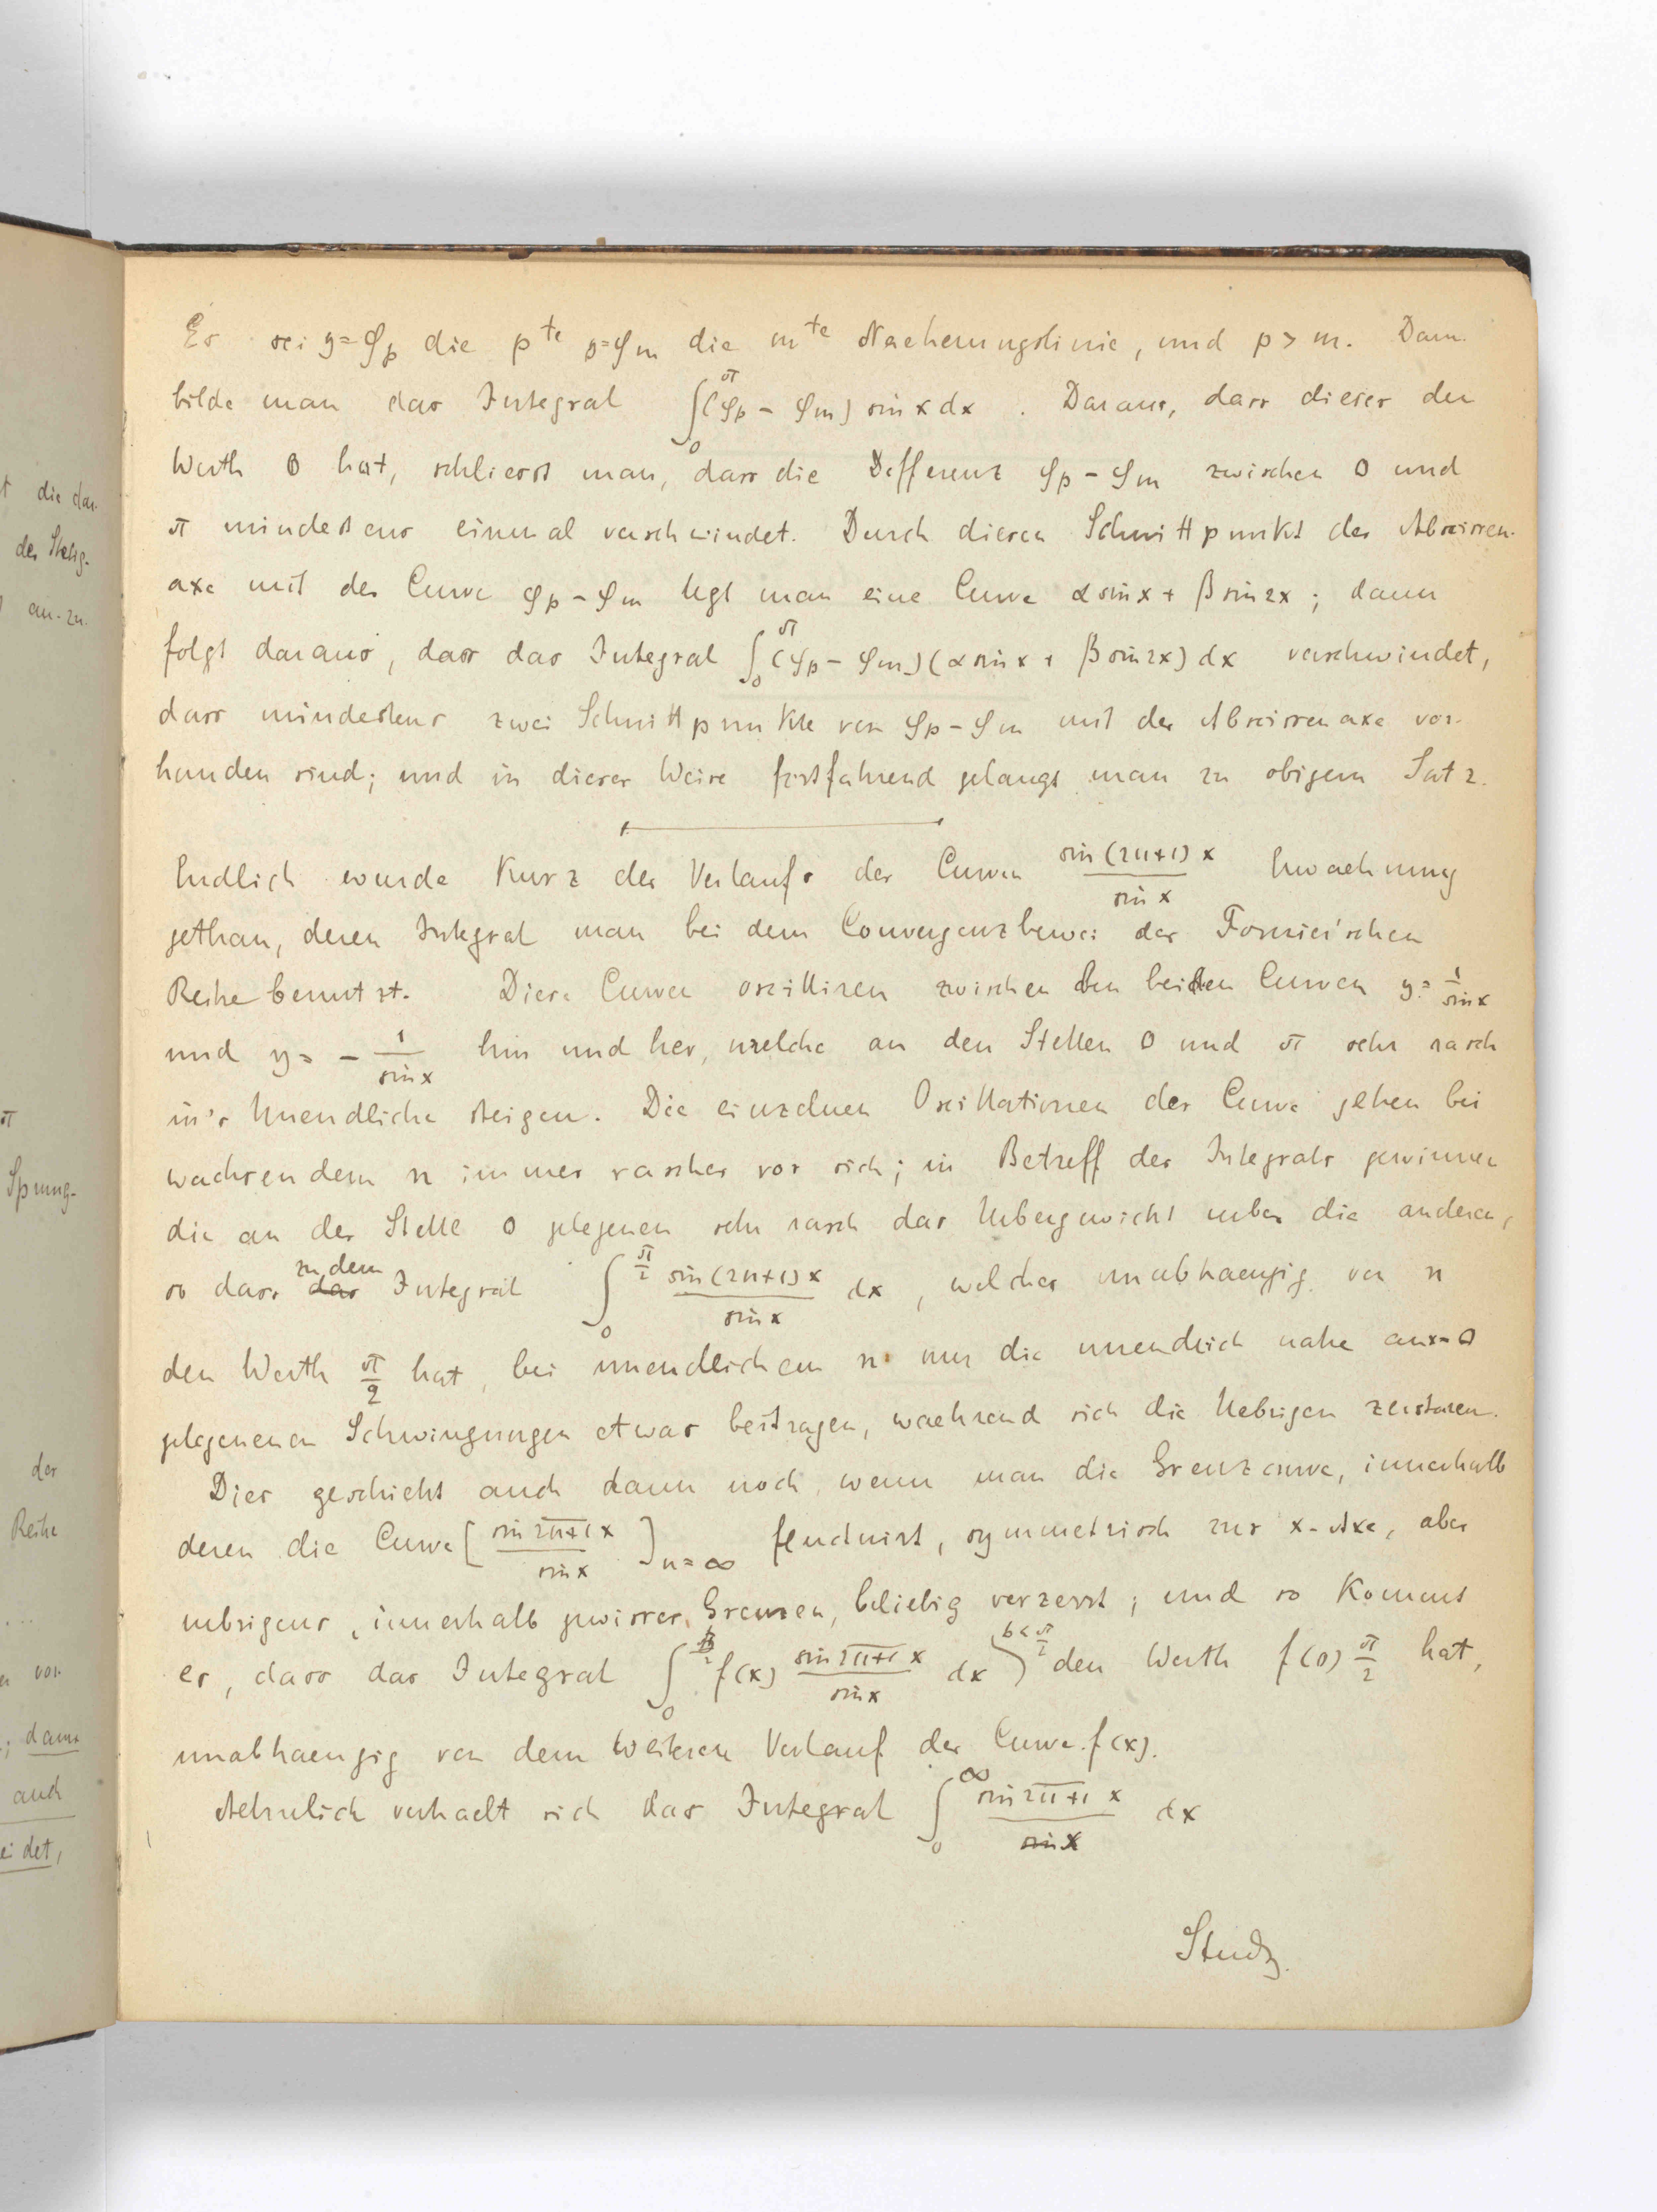 t die dar-
der Stetig-
t an-zu.
π
Sprung-
der
Reihe
...
n vor-
; dann
auch
eidet,
Es sei y=φ_p die p^te y=φ_m die m^te Naeherungslinie, und p > m. Dann
bilde man das Integral ∫_0^π (φ_p - φ_m) sin x dx . Daraus, dass dieses den
Werth 0 hat, schliesst man, dass die Differenz φ_p - φ_m zwischen 0 und
π mindestens einmal verschwindet. Durch diesen Schnittpunkt der Abscissen-
axe mit der Curve φ_p - φ_m legt man eine Curve α sin x + β sin 2x ; dann
folgt daraus, dass das Integral ∫_0^π (φ_p - φ_m)(α sin x + β sin 2x) dx verschwindet,
dass mindestens zwei Schnittpunkte von φ_p - φ_m mit der Abscissenaxe vor-
handen sind; und in dieser Weise fortfahrend gelangt man zu obigem Satz.
Endlich wurde kurz des Verlaufs der Curven sin(2n+1)x / sin x Erwaehnung
gethan, deren Integral man bei dem Convergenzbeweis der Fourier'schen
Reihe benutzt. Diese Curven oscilliren zwischen den beiden Curven y = 1/sin x
und y = - 1/sin x hin und her, welche an den Stellen 0 und π sehr rasch
in's Unendliche steigen. Die einzelnen Oscillationen der Curve gehen bei
wachsendem n immer rascher vor sich; in Betreff des Integrals gewinnen
die an der Stelle 0 gelegenen sehr rasch das Uebergewicht ueber die anderen,
so dass das zu dem Integral ∫_0^{π/2} sin(2n+1)x / sin x dx , welches unabhaengig von n
den Werth π/2 hat, bei unendlichem n nur die unendlich nahe an x=0
gelegenenen Schwingungen etwas beitragen, waehrend sich die Uebrigen zerstoeren.
Dies geschieht auch dann noch, wenn man die Grenzcurve, innerhalb
deren die Curve [sin \overline{2n+1} x / sin x]_{n=∞} fluctuirt, symmetrisch zur x-Axe, aber
uebrigens, innerhalb gewisser Grenzen, beliebig verzerrt; und so kommt
es, dass das Integral ∫_0^{b<π/2} f(x) sin \overline{2n+1} x / sin x dx den Werth f(0) π/2 hat,
unabhaengig von dem weiteren Verlauf der Curve f(x).
Aehnlich verhaelt sich das Integral ∫_0^∞ sin \overline{2n+1} x / x dx
Study.